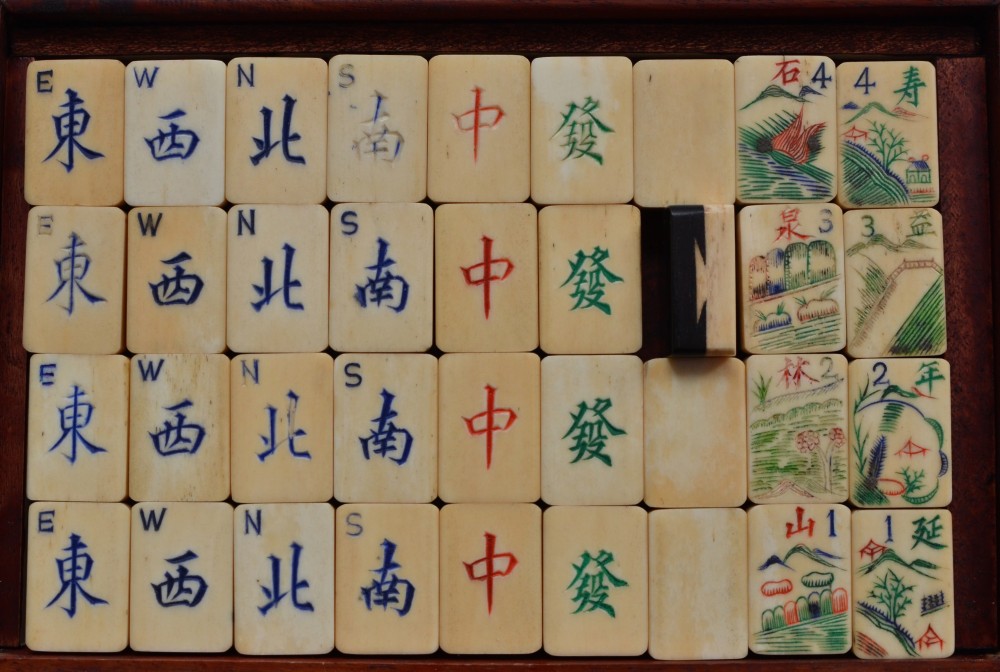 E W N S 石 4 4 寿
東 西 北 南 中 發
E W N S 泉 3 3 益
東 西 北 南 中 發
E W N S 林 2 2 年
東 西 北 南 中 發
E W N S 山 1 1 延
東 西 北 南 中 發